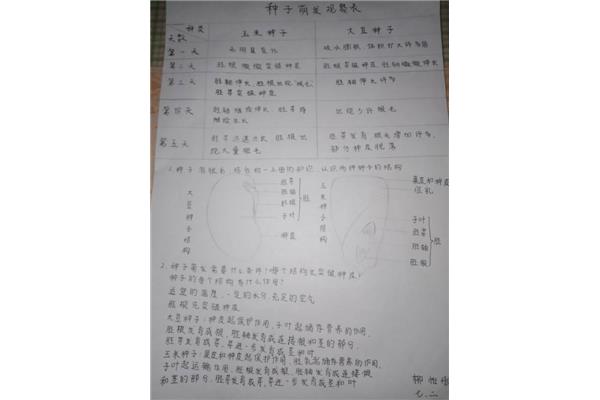 种子萌发观察表
种类
天数
玉米种子
大豆种子
第一天
无明显变化
吸水膨胀,体积扩大许多倍
第二天
胚根微微突破种皮
胚根突破种皮,胚轴微微伸长
第三天
胚轴伸长,胚根
胚芽突破种皮
胚轴伸长许多
第四天
胚轴继续伸长,胚芽持
续生长
出现少许根毛
第五天
胚芽迅速生长,胚根出
现大量根毛
胚芽发育,根毛增加许多,
部分种皮脱落
认识两种种子的结构
大豆种子结构
胚芽
胚轴
胚根
子叶
胚
种皮
玉米种子结构
果皮和种皮
胚乳
子叶
胚芽
胚轴
胚根
胚
2.种子萌发需要什么条件?哪个结构先突破种皮?
种子的每个结构有什么作用?
适宜的温度,一定的水分,充足的空气
胚根先突破种皮
大豆种子:种皮起保护作用,子叶起储存营养的作用,
胚根发育成根,胚轴发育成连接根和茎的部分,
胚芽发育成芽,芽进一步发育成茎和叶
玉米种子:果皮和种皮起保护作用,胚乳起储存营养的作用,
子叶起运输作用,胚根发育成根,胚轴发育成连接根
和茎的部分,胚芽发育成芽,芽进一步发育成茎和叶
七.二